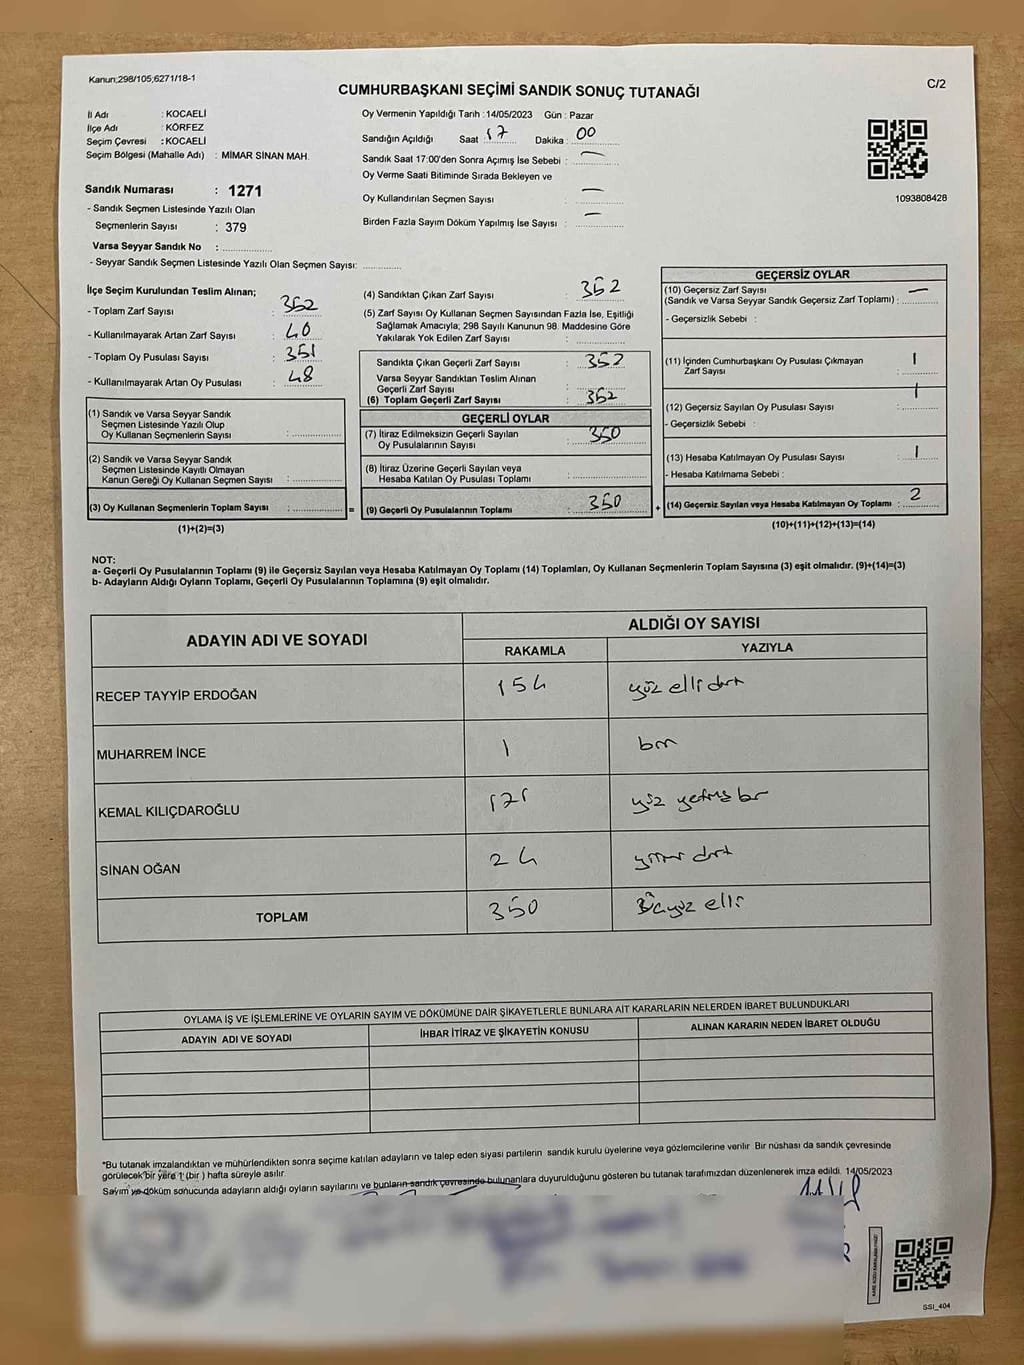 Kanun;298/105;6271/18-1
CUMHURBAŞKANI SEÇİMİ SANDIK SONUÇ TUTANAĞI
C/2
İl Adı : KOCAELİ
İlçe Adı : KÖRFEZ
Seçim Çevresi : KOCAELİ
Seçim Bölgesi (Mahalle Adı) : MİMAR SİNAN MAH.
Sandık Numarası : 1271
- Sandık Seçmen Listesinde Yazılı Olan
Seçmenlerin Sayısı : 379
Varsa Seyyar Sandık No :
- Seyyar Sandık Seçmen Listesinde Yazılı Olan Seçmen Sayısı:
Oy Vermenin Yapıldığı Tarih :14/05/2023 Gün : Pazar
Sandığın Açıldığı Saat : 17 Dakika : 00
Sandık Saat 17:00'den Sonra Açımış İse Sebebi : —
Oy Verme Saati Bitiminde Sırada Bekleyen ve
Oy Kullandırılan Seçmen Sayısı : —
Birden Fazla Sayım Döküm Yapılmış İse Sayısı : —
1093808428
İlçe Seçim Kurulundan Teslim Alınan;
- Toplam Zarf Sayısı : 352
- Kullanılmayarak Artan Zarf Sayısı : 40
- Toplam Oy Pusulası Sayısı : 351
- Kullanılmayarak Artan Oy Pusulası : 48
(1) Sandık ve Varsa Seyyar Sandık
Seçmen Listesinde Yazılı Olup
Oy Kullanan Seçmenlerin Sayısı :
(2) Sandık ve Varsa Seyyar Sandık
Seçmen Listesinde Kayıtlı Olmayan
Kanun Gereği Oy Kullanan Seçmen Sayısı :
(3) Oy Kullanan Seçmenlerin Toplam Sayısı : =
(1)+(2)=(3)
(4) Sandıktan Çıkan Zarf Sayısı : 352
(5) Zarf Sayısı Oy Kullanan Seçmen Sayısından Fazla İse, Eşitliği
Sağlamak Amacıyla; 298 Sayılı Kanunun 98. Maddesine Göre
Yakılarak Yok Edilen Zarf Sayısı :
Sandıkta Çıkan Geçerli Zarf Sayısı : 352
Varsa Seyyar Sandıktan Teslim Alınan
Geçerli Zarf Sayısı :
(6) Toplam Geçerli Zarf Sayısı : 352
GEÇERLİ OYLAR
(7) İtiraz Edilmeksizin Geçerli Sayılan
Oy Pusulalarının Sayısı : 350
(8) İtiraz Üzerine Geçerli Sayılan veya
Hesaba Katılan Oy Pusulası Toplamı :
(9) Geçerli Oy Pusulalarının Toplamı : 350 +
GEÇERSİZ OYLAR
(10) Geçersiz Zarf Sayısı —
(Sandık ve Varsa Seyyar Sandık Geçersiz Zarf Toplamı) :
- Geçersizlik Sebebi :
(11) İçinden Cumhurbaşkanı Oy Pusulası Çıkmayan
Zarf Sayısı : 1
(12) Geçersiz Sayılan Oy Pusulası Sayısı : 1
- Geçersizlik Sebebi :
(13) Hesaba Katılmayan Oy Pusulası Sayısı : 1
- Hesaba Katılmama Sebebi :
(14) Geçersiz Sayılan veya Hesaba Katılmayan Oy Toplamı : 2
(10)+(11)+(12)+(13)=(14)
NOT:
a- Geçerli Oy Pusulalarının Toplamı (9) ile Geçersiz Sayılan veya Hesaba Katılmayan Oy Toplamı (14) Toplamları, Oy Kullanan Seçmenlerin Toplam Sayısına (3) eşit olmalıdır. (9)+(14)=(3)
b- Adayların Aldığı Oyların Toplamı, Geçerli Oy Pusulalarının Toplamına (9) eşit olmalıdır.
ADAYIN ADI VE SOYADI
ALDIĞI OY SAYISI
RAKAMLA YAZIYLA
RECEP TAYYİP ERDOĞAN 154 yüz elli dört
MUHARREM İNCE 1 bir
KEMAL KILIÇDAROĞLU 171 yüz yetmiş bir
SİNAN OĞAN 24 yirmi dört
TOPLAM 350 üçyüz elli
OYLAMA İŞ VE İŞLEMLERİNE VE OYLARIN SAYIM VE DÖKÜMÜNE DAİR ŞİKAYETLERLE BUNLARA AİT KARARLARIN NELERDEN İBARET BULUNDUKLARI
ADAYIN ADI VE SOYADI İHBAR İTİRAZ VE ŞİKAYETİN KONUSU ALINAN KARARIN NEDEN İBARET OLDUĞU
*Bu tutanak imzalandıktan ve mühürlendikten sonra seçime katılan adayların ve talep eden siyasi partilerin sandık kurulu üyelerine veya gözlemcilerine verilir. Bir nüshası da sandık çevresinde
görülecek bir yere 1 (bir ) hafta süreyle asılır.
Sayım ve döküm sonucunda adayların aldığı oyların sayılarını ve bunların sandık çevresinde bulunanlara duyurulduğunu gösteren bu tutanak tarafımızdan düzenlenerek imza edildi. 14/05/2023
SSI_404